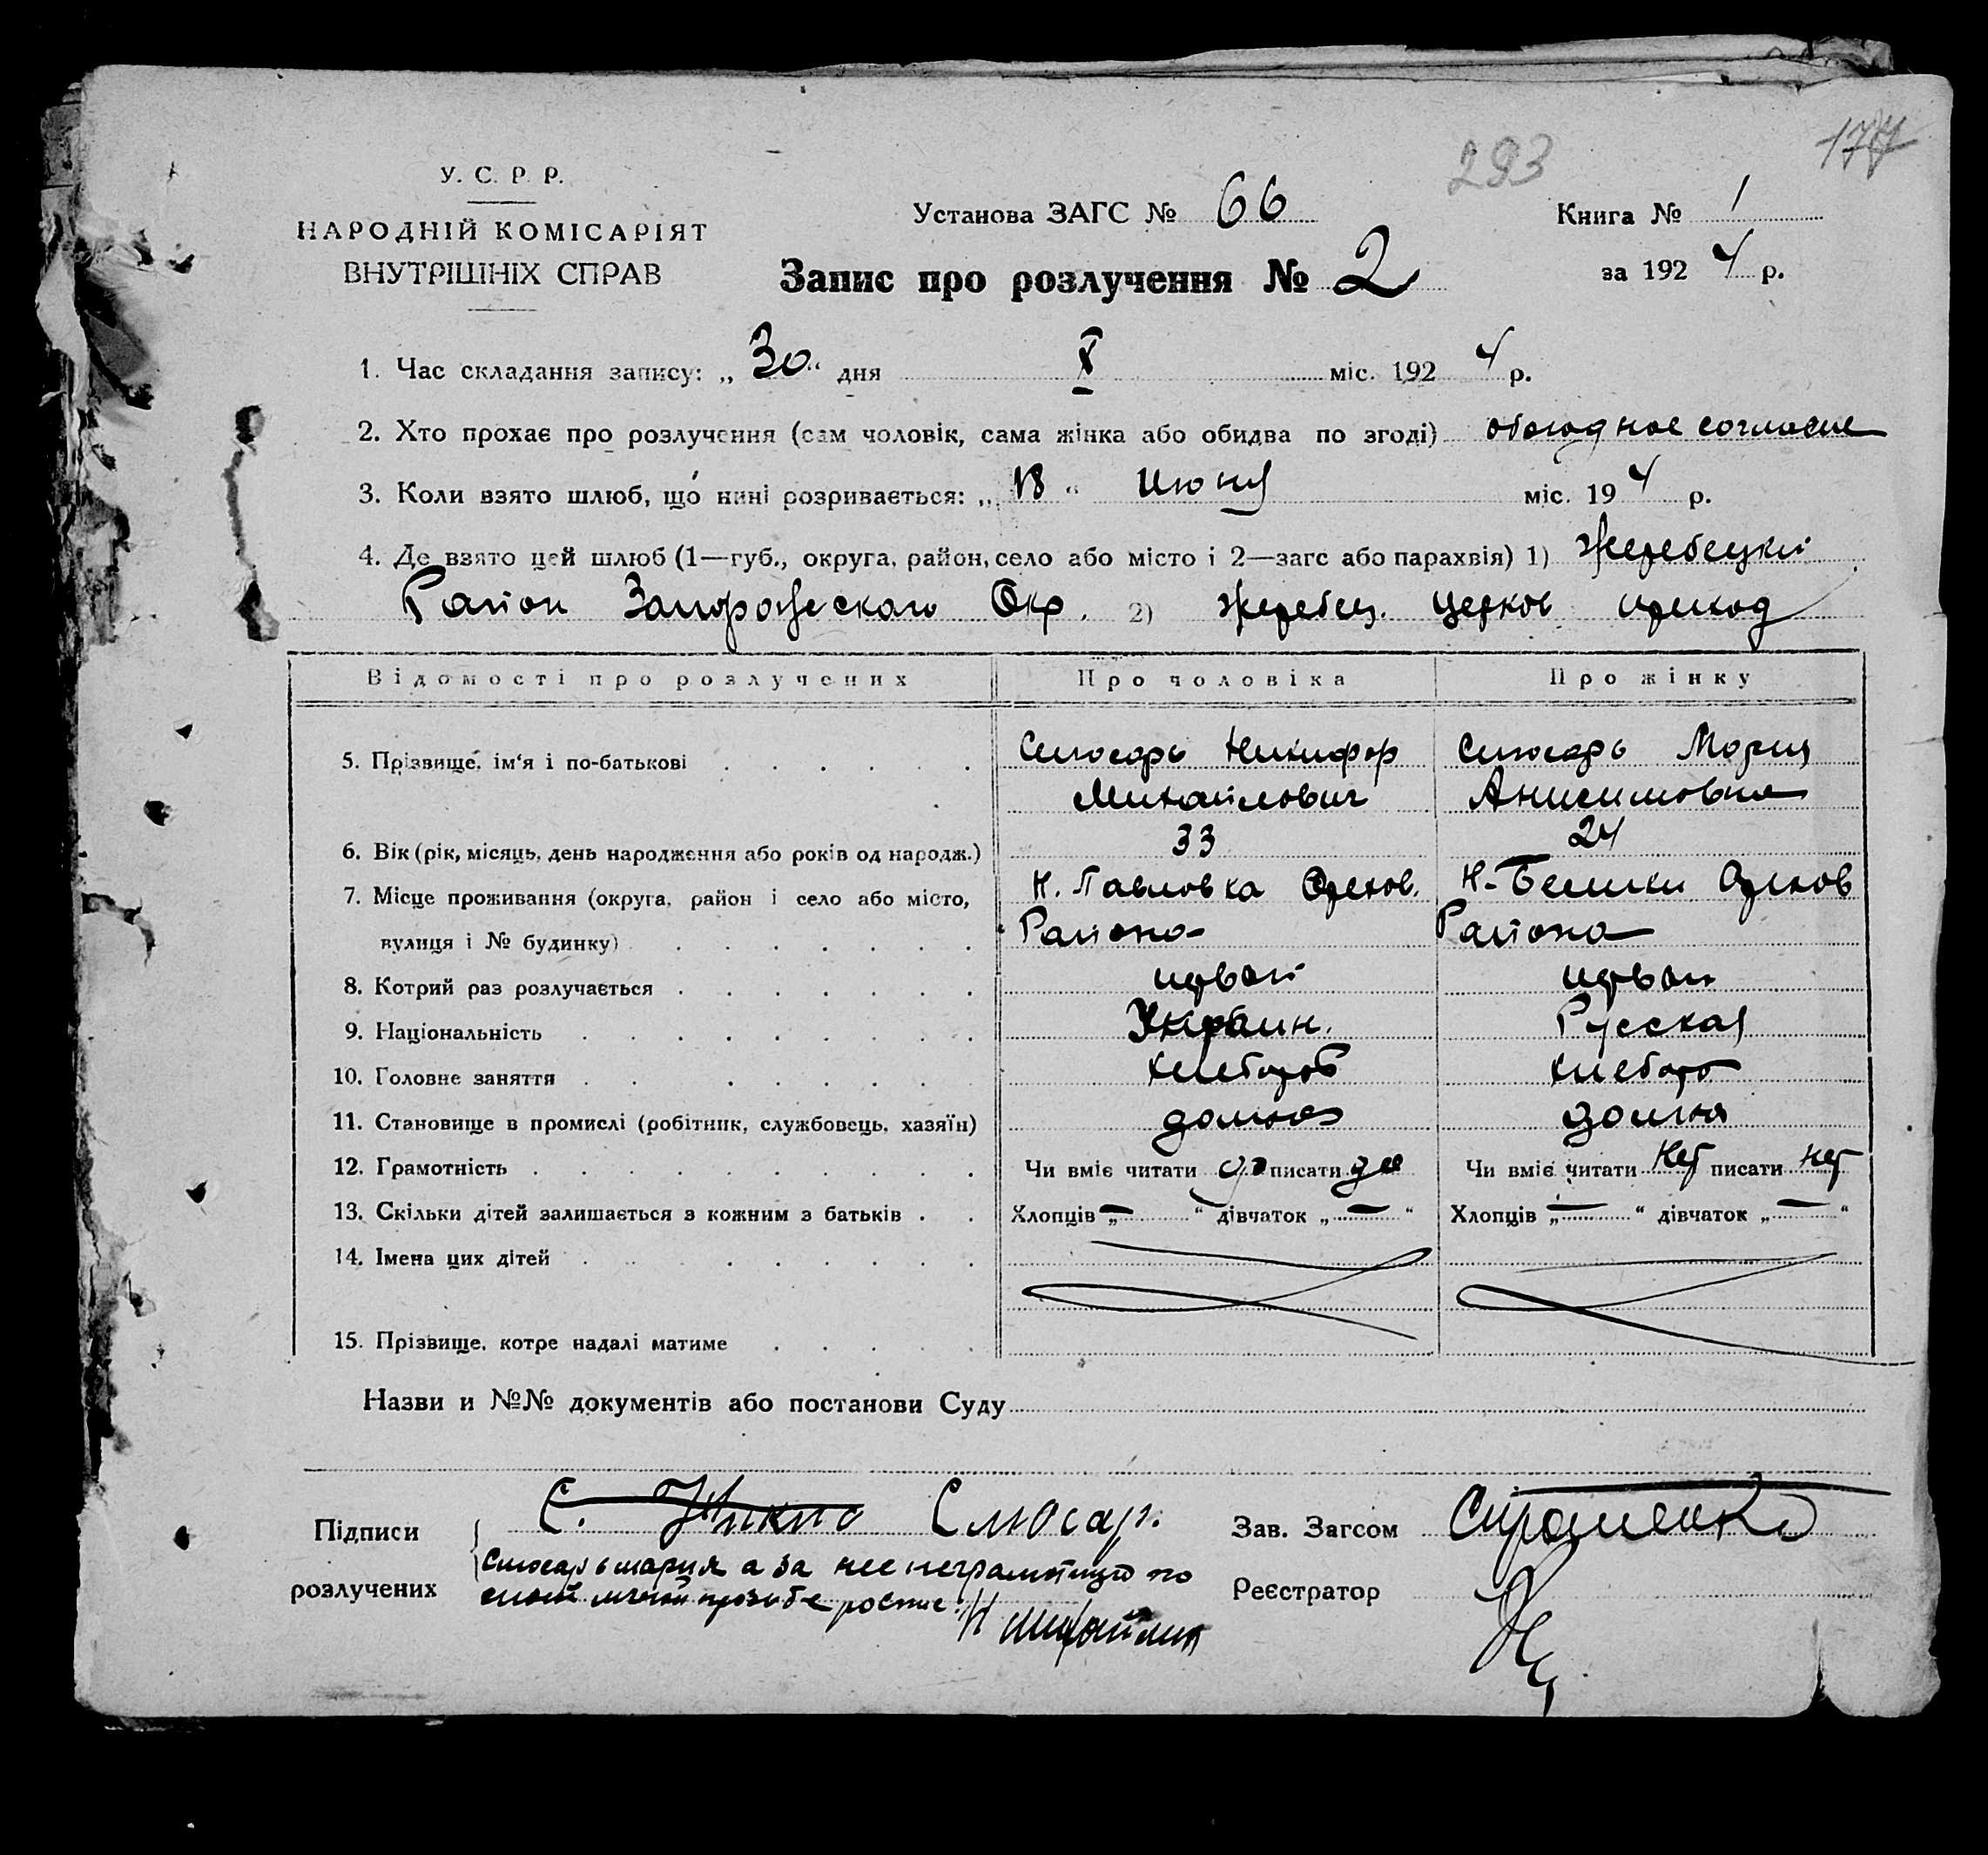 293
177
У. С. Р. Р.
НАРОДНІЙ КОМІСАРІЯТ
ВНУТРІШНІХ СПРАВ
Установа ЗАГС № 66
Книга № 1
за 1924 р.
Запис про розлучення № 2
1. Час складання запису: „30“ дня X міс. 1924 р.
2. Хто прохає про розлучення (сам чоловік, сама жінка або обидва по згоді) обоюдное согласие
3. Коли взято шлюб, що нині розривається: „18“ Июня міс. 194 р.
4. Де взято цей шлюб (1—губ., округа, район, село або місто і 2—загс або парахвія) 1) Жеребецкий
Район Запорожского Окр. 2) Жеребец. церков приход
Відомості про розлучених Про чоловіка Про жінку
5. Прізвище, ім'я і по-батькові Слюсарь Никифор Слюсарь Мария
Михайлович Анисимовна
6. Вік (рік, місяць, день народження або років од народж.) 33 24
7. Місце проживання (округа, район і село або місто, Н. Павловка Орехов. Н- Орехов
вулиця і № будинку) Района Района
8. Котрий раз розлучається первый первый
9. Національність Украин. Русская
10. Головне заняття хлебороб хлебороб
11. Становище в промислі (робітник, службовець, хазяїн)
12. Грамотність Чи вміє читати да писати да Чи вміє читати нет писати нет
13. Скільки дітей залишається з кожним з батьків Хлопців „—“ дівчаток „—“ Хлопців „—“ дівчаток „—“
14. Імена цих дітей
15. Прізвище, котре надалі матиме
Назви и №№ документів або постанови Суду
Підписи
розлучених
С. Слюсар.
Слюсарь мария а за нее неграмотную по
прозьбе
Зав. Загсом
Реєстратор